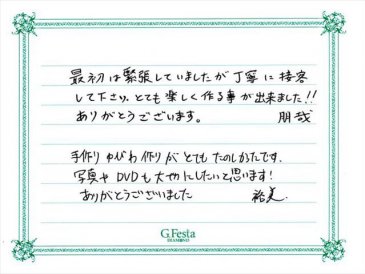 最初は緊張していましたが丁寧に接客
して下さり、とても楽しく作る事が出来ました!!
ありがとうございます。 朋哉
手作りゆびわ作りがとてもたのしかったです.
写真やDVDも大切にしたいと思います!
ありがとうございました 裕美
G.Festa
DIAMOND